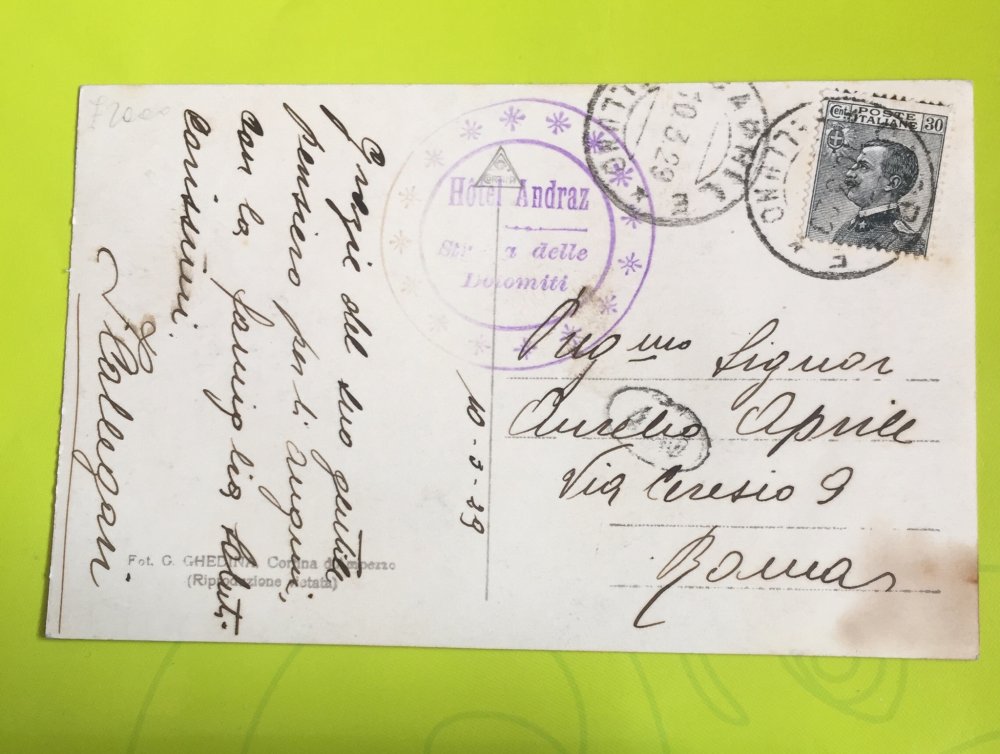 Grazie del suo gentile
pensiero per li auguri,
con la famiglia saluti
carissimi.
10-3-29
Fot. G. GHEDINA, Cortina d'Ampezzo
(Riproduzione vietata)
Hôtel Andraz
Strada delle
Dolomiti
10.3.29
BELLUNO
POSTE
ITALIANE
Cent. 30
Signor
Aurelio Aprile
Via Ceresio 9
Roma